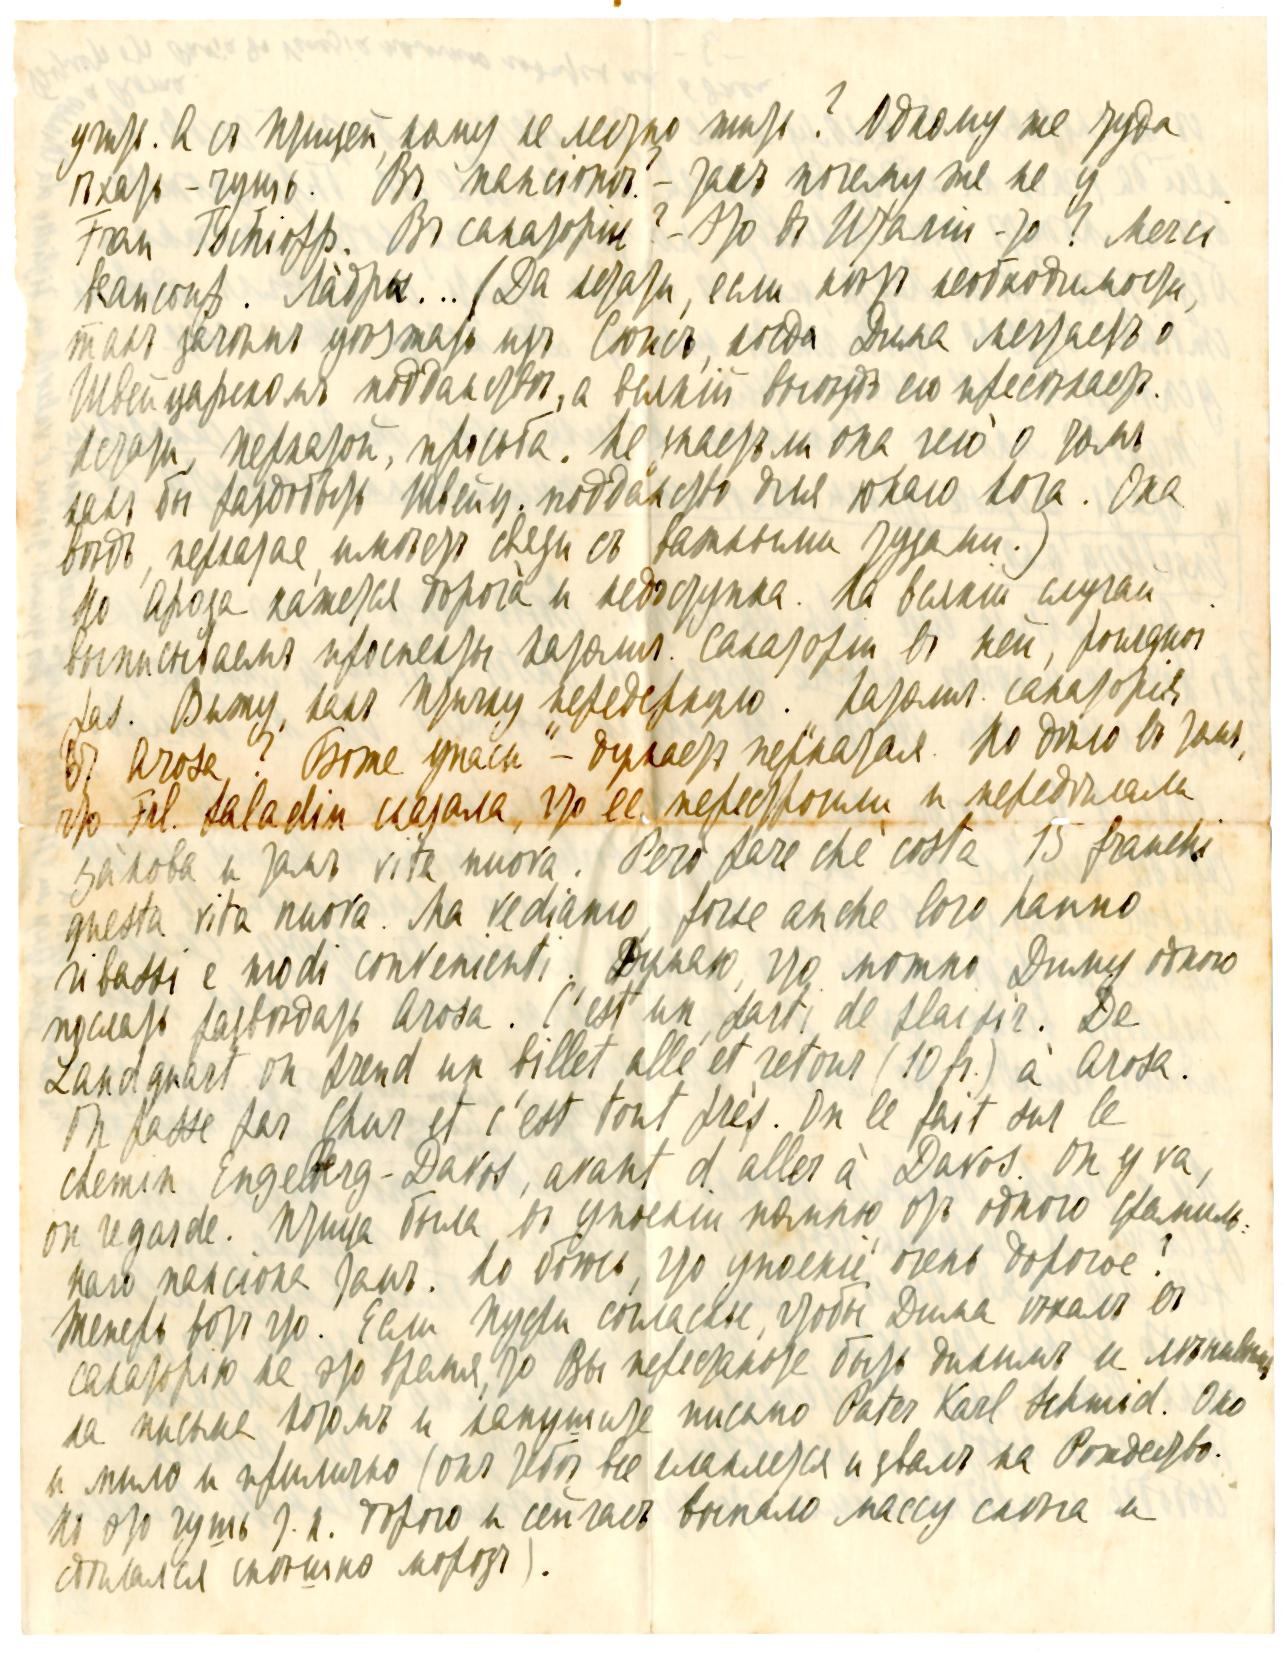 утрь. А съ Прицей, кому не лестно жить? Одному же туда
ѣхать – чушь. Въ пансіонъ – такъ почему же не у
Frau Tschiopp. Въ санаторіи? – Это въ Италіи-то? Merci
beaucoup. Ладры... (Да кстати, если нѣтъ необходимости,
такъ зачѣмъ уѣзжать изъ Сюисъ, когда Дима мечтаетъ о
Швейцарскомъ подданствѣ, а всякій выѣздъ сіе пресѣкаетъ.
Кстати, перкатой, просьба. Не знаетъ ли она чего о томъ
какъ бы раздобыть Швейц. подданство для юнаго кота. Она
вѣдь, перкатая, имѣетъ связи съ важными тузами.)
Но Ароза кажется дорога и недоступна. На всякій случай
выписываемъ проспекты катол. Санаторіи въ ней, pourquoi
pas. Вижу, какъ Прицу передернуло. Катол. санаторія
въ Arosa? "Боже упаси" – думаетъ перкатая. Но дѣло въ томъ,
что Frl. Saladin сказала, что ее перестроили и передѣлали
заново и тамъ vita nuova. Però pare che costa 15 franchi
questa vita nuova. Ma vediamo, forse anche loro hanno
ribassi e modi convenienti. Думаю, что можно Диму одного
послать развѣдать Arosa. C'est un parti de plaisir. De
Landquart on prend un billet allé et retour (10 fr.) à Arosa.
On passe par Chur et c'est tout près. On le fait sur le
chemin Engelberg-Davos, avant d'aller à Davos. On y va,
on regarde. Прица была въ упоеніи помню отъ одного фамиль-
наго пансіона тамъ. Но боюсь, что упоеніе очень дорогое?
Теперь вотъ что. Если Пусти согласны, чтобы Дима ѣхалъ въ
санаторію на это время, то Вы перестаньте быть дикимъ и лѣнивымъ
на письма котомъ и напушите письмо Pater Karl Schmid. Оно
и мило и прилично (онъ Тебѣ все кланяется и звалъ на Рождество.
Но это чушь т.к. дорого и сейчасъ выпало массу снѣга и
сдѣлался снѣшно морозъ).